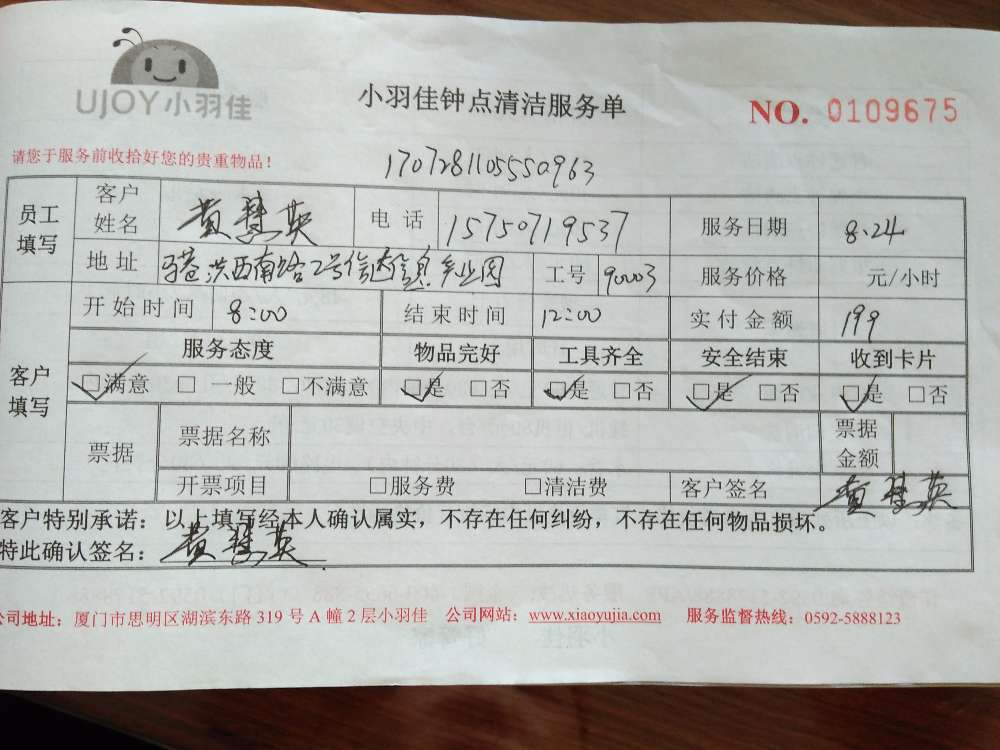 UJOY小羽佳
小羽佳钟点清洁服务单
NO. 0109675
请您于服务前收拾好您的贵重物品！
1707281105550963
员工填写 客户姓名 黄慧英 电话 15750719537 服务日期 8.24
地址 马巷洪西南路2号信达信息产业园 工号 90003 服务价格 元/小时
客户填写 开始时间 8:00 结束时间 12:00 实付金额 199
服务态度 物品完好 工具齐全 安全结束 收到卡片
□满意 □ 一般 □不满意 □是 □否 □是 □否 □是 □否 □是 □否
票据 票据名称 票据金额
开票项目 □服务费 □清洁费 客户签名 黄慧英
客户特别承诺：以上填写经本人确认属实，不存在任何纠纷，不存在任何物品损坏。
特此确认签名：黄慧英
公司地址：厦门市思明区湖滨东路 319 号 A 幢 2 层小羽佳 公司网站：www.xiaoyujia.com 服务监督热线：0592-5888123